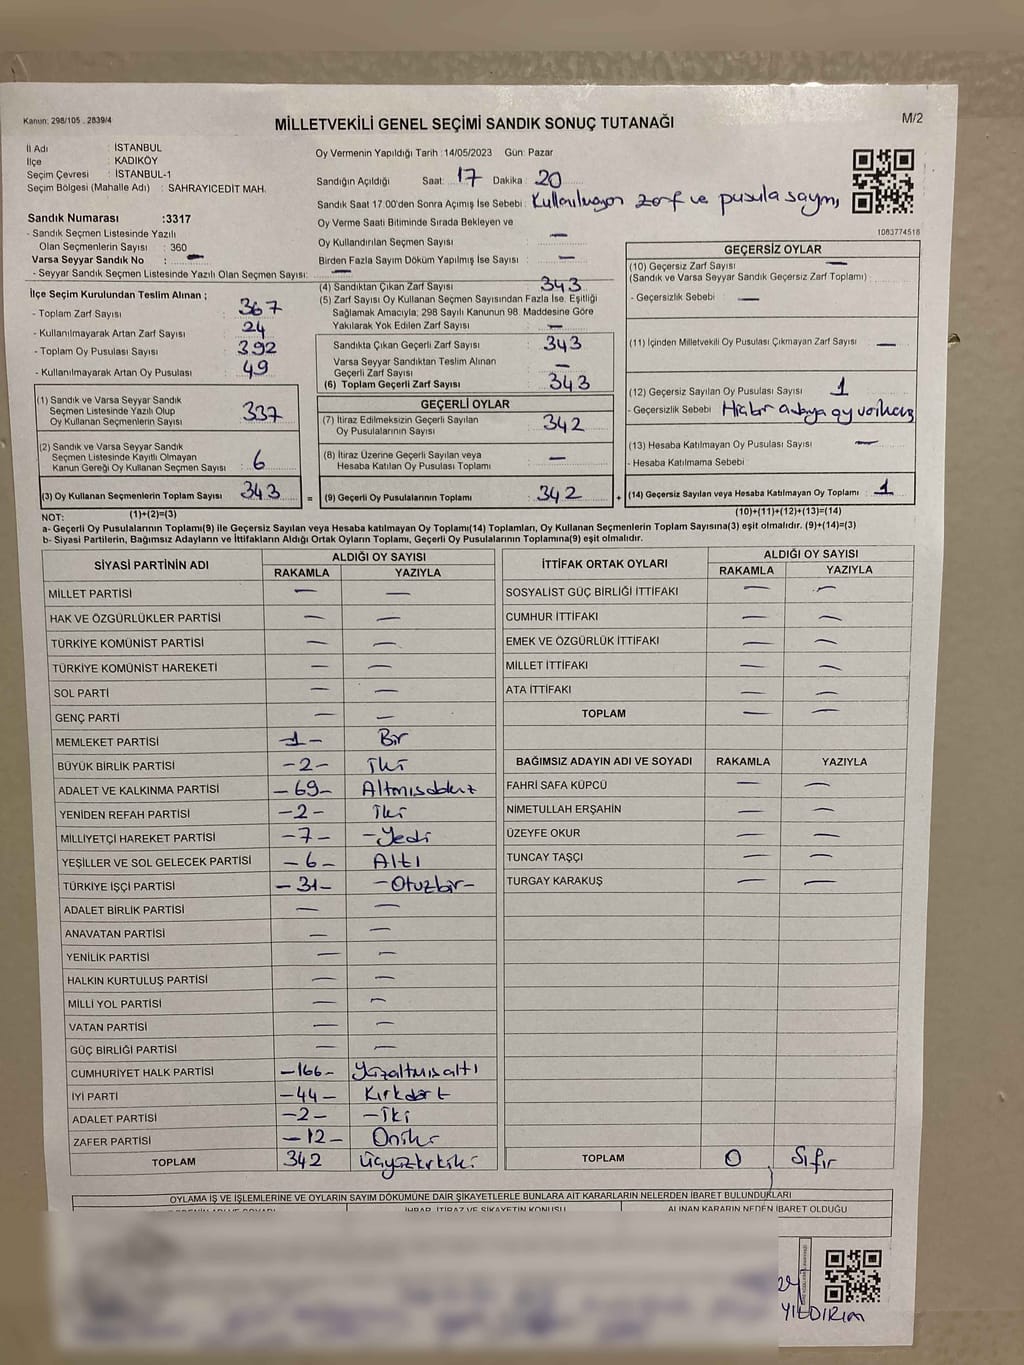 Kanun: 298/105 . 2839/4
MİLLETVEKİLİ GENEL SEÇİMİ SANDIK SONUÇ TUTANAĞI
M/2
İl Adı : İSTANBUL
İlçe : KADIKÖY
Seçim Çevresi : İSTANBUL-1
Seçim Bölgesi (Mahalle Adı) : SAHRAYICEDİT MAH.
Sandık Numarası :3317
- Sandık Seçmen Listesinde Yazılı
Olan Seçmenlerin Sayısı : 360
Varsa Seyyar Sandık No : —
- Seyyar Sandık Seçmen Listesinde Yazılı Olan Seçmen Sayısı: —
Oy Vermenin Yapıldığı Tarih :14/05/2023 Gün: Pazar
Sandığın Açıldığı Saat: 17 Dakika: 20
Sandık Saat 17.00'den Sonra Açımış İse Sebebi: Kullanılmayan zarf ve pusula sayımı
Oy Verme Saati Bitiminde Sırada Bekleyen ve
Oy Kullandırılan Seçmen Sayısı —
Birden Fazla Sayım Döküm Yapılmış İse Sayısı : —
1083774518
İlçe Seçim Kurulundan Teslim Alınan ;
- Toplam Zarf Sayısı : 367
- Kullanılmayarak Artan Zarf Sayısı : 24
- Toplam Oy Pusulası Sayısı : 392
- Kullanılmayarak Artan Oy Pusulası : 49
(1) Sandık ve Varsa Seyyar Sandık
Seçmen Listesinde Yazılı Olup
Oy Kullanan Seçmenlerin Sayısı : 337
(2) Sandık ve Varsa Seyyar Sandık
Seçmen Listesinde Kayıtlı Olmayan
Kanun Gereği Oy Kullanan Seçmen Sayısı : 6
(3) Oy Kullanan Seçmenlerin Toplam Sayısı : 343
(1)+(2)=(3)
(4) Sandıktan Çıkan Zarf Sayısı : 343
(5) Zarf Sayısı Oy Kullanan Seçmen Sayısından Fazla İse, Eşitliği
Sağlamak Amacıyla; 298 Sayılı Kanunun 98. Maddesine Göre
Yakılarak Yok Edilen Zarf Sayısı : —
Sandıkta Çıkan Geçerli Zarf Sayısı : 343
Varsa Seyyar Sandıktan Teslim Alınan
Geçerli Zarf Sayısı : —
(6) Toplam Geçerli Zarf Sayısı : 343
GEÇERLİ OYLAR
(7) İtiraz Edilmeksizin Geçerli Sayılan
Oy Pusulalarının Sayısı : 342
(8) İtiraz Üzerine Geçerli Sayılan veya
Hesaba Katılan Oy Pusulası Toplamı : —
= (9) Geçerli Oy Pusulalarının Toplamı : 342
GEÇERSİZ OYLAR
(10) Geçersiz Zarf Sayısı : —
(Sandık ve Varsa Seyyar Sandık Geçersiz Zarf Toplamı) :
- Geçersizlik Sebebi : —
(11) İçinden Milletvekili Oy Pusulası Çıkmayan Zarf Sayısı : —
(12) Geçersiz Sayılan Oy Pusulası Sayısı : 1
- Geçersizlik Sebebi : Hiçbir adaya oy
(13) Hesaba Katılmayan Oy Pusulası Sayısı : —
- Hesaba Katılmama Sebebi :
+ (14) Geçersiz Sayılan veya Hesaba Katılmayan Oy Toplamı : 1
(10)+(11)+(12)+(13)=(14)
NOT:
a- Geçerli Oy Pusulalarının Toplamı(9) ile Geçersiz Sayılan veya Hesaba katılmayan Oy Toplamı(14) Toplamları, Oy Kullanan Seçmenlerin Toplam Sayısına(3) eşit olmalıdır. (9)+(14)=(3)
b- Siyasi Partilerin, Bağımsız Adayların ve İttifakların Aldığı Ortak Oyların Toplamı, Geçerli Oy Pusulalarının Toplamına(9) eşit olmalıdır.
SİYASİ PARTİNİN ADI ALDIĞI OY SAYISI
RAKAMLA YAZIYLA
MİLLET PARTİSİ — —
HAK VE ÖZGÜRLÜKLER PARTİSİ — —
TÜRKİYE KOMÜNİST PARTİSİ — —
TÜRKİYE KOMÜNİST HAREKETİ — —
SOL PARTİ — —
GENÇ PARTİ — —
MEMLEKET PARTİSİ -1- Bir
BÜYÜK BİRLİK PARTİSİ -2- iki
ADALET VE KALKINMA PARTİSİ -69- Altmışdokuz
YENİDEN REFAH PARTİSİ -2- iki
MİLLİYETÇİ HAREKET PARTİSİ -7- -Yedi
YEŞİLLER VE SOL GELECEK PARTİSİ -6- Altı
TÜRKİYE İŞÇİ PARTİSİ -31- -Otuzbir-
ADALET BİRLİK PARTİSİ — —
ANAVATAN PARTİSİ — —
YENİLİK PARTİSİ — —
HALKIN KURTULUŞ PARTİSİ — —
MİLLİ YOL PARTİSİ — —
VATAN PARTİSİ — —
GÜÇ BİRLİĞİ PARTİSİ — —
CUMHURİYET HALK PARTİSİ -166- Yüzaltmışaltı
İYİ PARTİ -44- Kırkdört
ADALET PARTİSİ -2- -iki
ZAFER PARTİSİ -12- Oniki
TOPLAM 342 Üçyüzkırkiki
İTTİFAK ORTAK OYLARI ALDIĞI OY SAYISI
RAKAMLA YAZIYLA
SOSYALİST GÜÇ BİRLİĞİ İTTİFAKI — —
CUMHUR İTTİFAKI — —
EMEK VE ÖZGÜRLÜK İTTİFAKI — —
MİLLET İTTİFAKI — —
ATA İTTİFAKI — —
TOPLAM — —
BAĞIMSIZ ADAYIN ADI VE SOYADI RAKAMLA YAZIYLA
FAHRİ SAFA KÜPCÜ — —
NİMETULLAH ERŞAHİN — —
ÜZEYFE OKUR — —
TUNCAY TAŞÇI — —
TURGAY KARAKUŞ — —
TOPLAM 0 Sıfır
OYLAMA İŞ VE İŞLEMLERİNE VE OYLARIN SAYIM DÖKÜMÜNE DAİR ŞİKAYETLERLE BUNLARA AİT KARARLARIN NELERDEN İBARET BULUNDUKLARI
İHBAR, İTİRAZ VE ŞİKAYETİN KONUSU ALINAN KARARIN NEDEN İBARET OLDUĞU
YILDIRIM